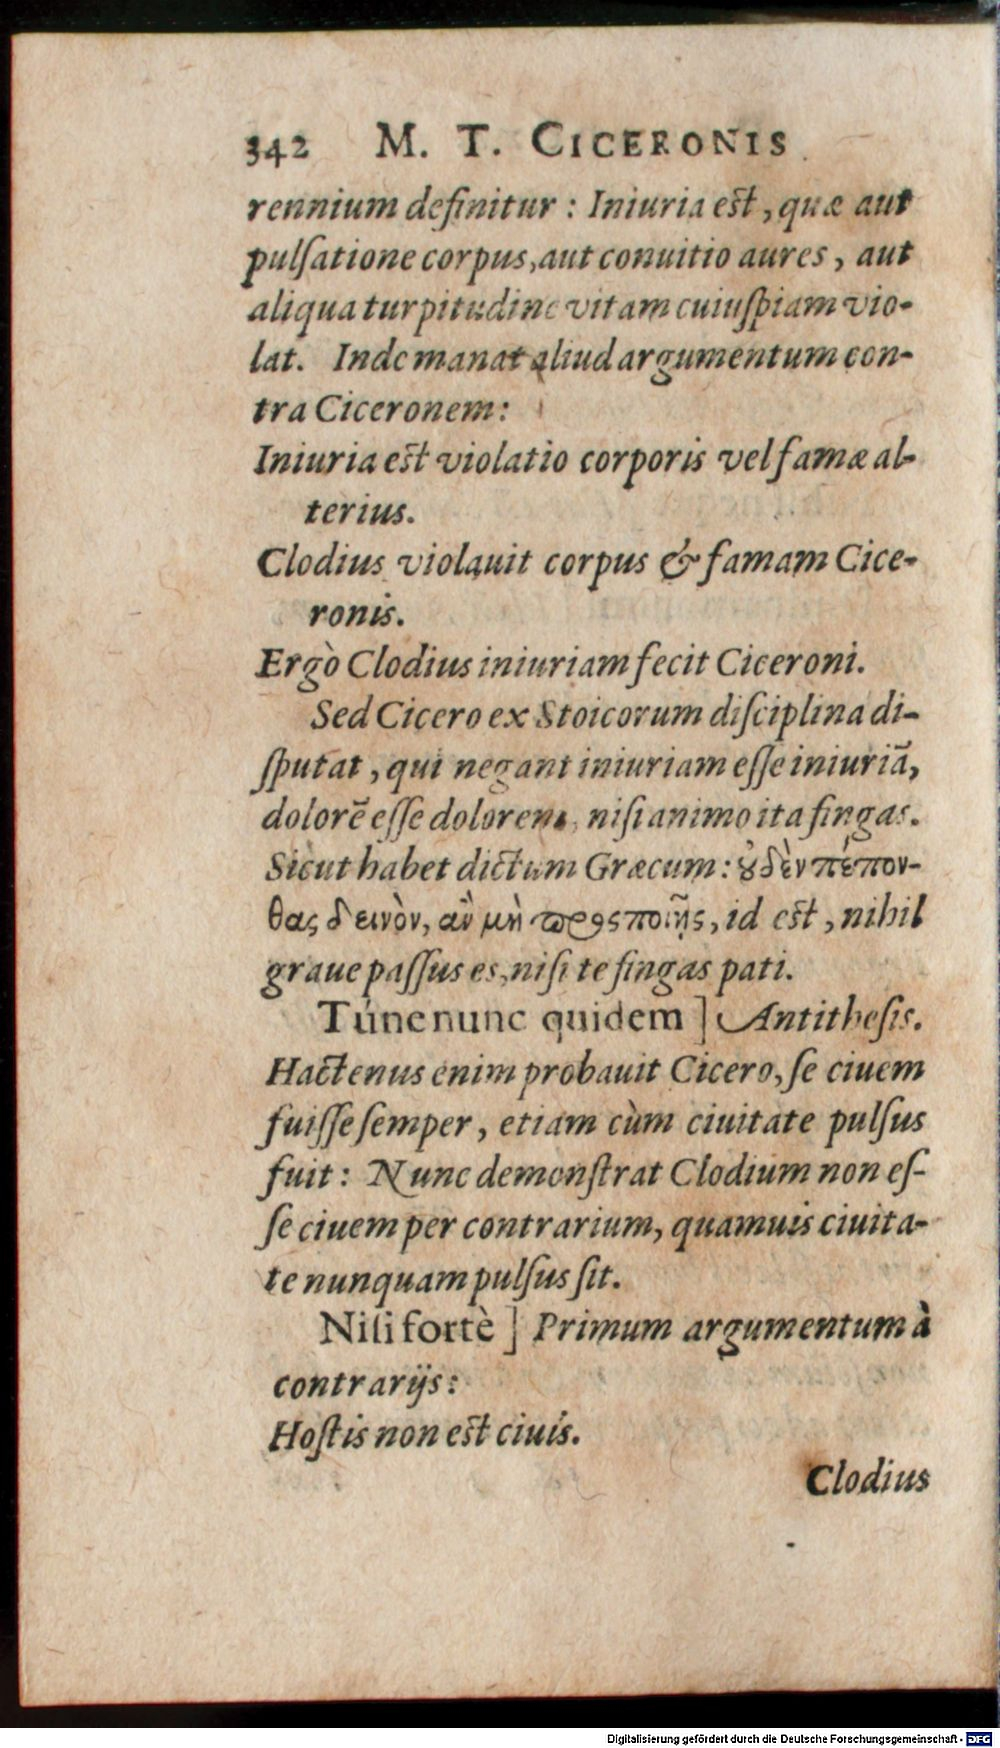 342 M. T. CICERONIS
rennium definitur : Iniuria est, quæ aut
pulſatione corpus, aut conuitio aures, aut
aliqua turpitudine vitam cuiuſpiam vio-
lat. Inde manat aliud argumentum con-
tra Ciceronem:
Iniuria est violatio corporis vel famæ al-
terius.
Clodius violauit corpus & famam Cice-
ronis.
Ergò Clodius iniuriam fecit Ciceroni.
Sed Cicero ex Stoicorum diſciplina di-
ſputat, qui negant iniuriam eſſe iniuriã,
dolorẽ eſſe dolorem, niſi animo ita fingas.
Sicut habet dictum Græcum: ȣ̓δὲν πέπον-
θας δεινὸν, ἂν μὴ ϖροςποιῇς, id est, nihil
graue paſſus es, niſi te fingas pati.
Túne nunc quidem] Antitheſis.
Hactenus enim probauit Cicero, ſe ciuem
fuiſſe ſemper, etiam cùm ciuitate pulſus
fuit: Nunc demonſtrat Clodium non eſ-
ſe ciuem per contrarium, quamuis ciuita-
te nunquam pulſus ſit.
Niſi fortè] Primum argumentum à
contrarijs:
Hoſtis non est ciuis.
Clodius
Digitalisierung gefördert durch die Deutsche Forschungsgemeinschaft - DFG